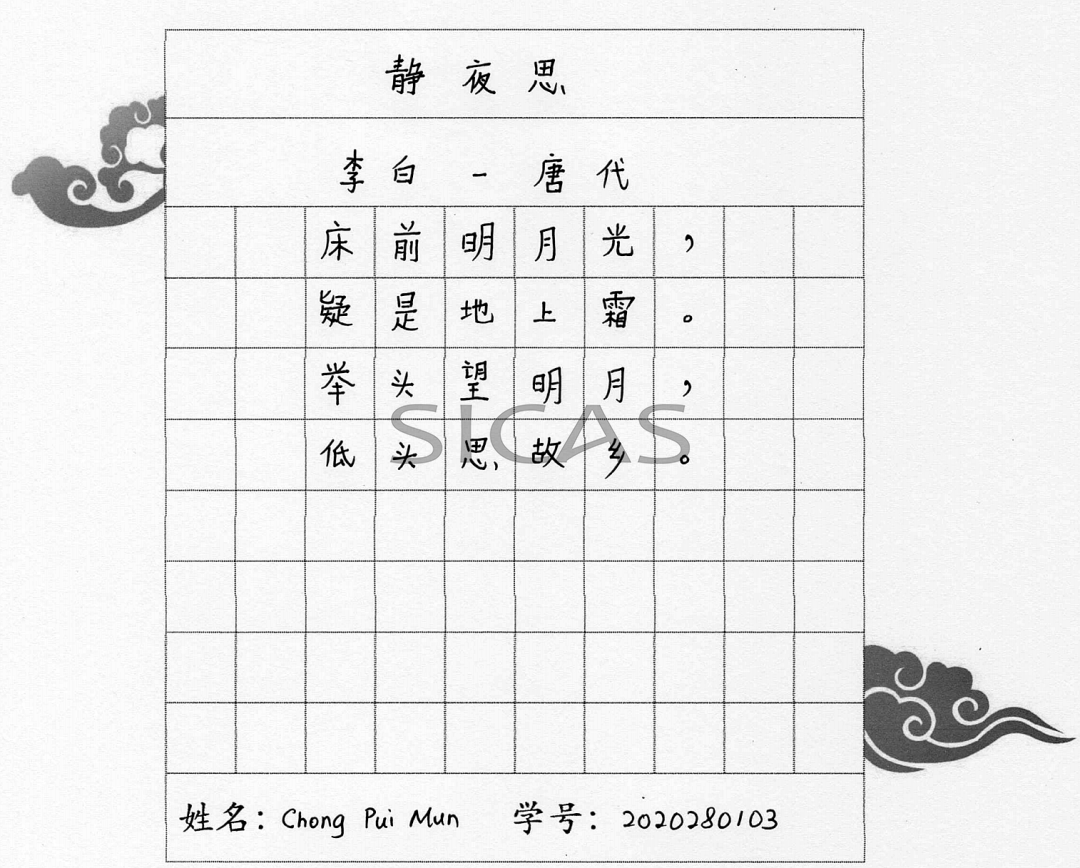 静夜思
李白 - 唐代
床前明月光，
疑是地上霜。
举头望明月，
SICAS
低头思故乡。
姓名：Chong Pui Mun 学号：2020280103